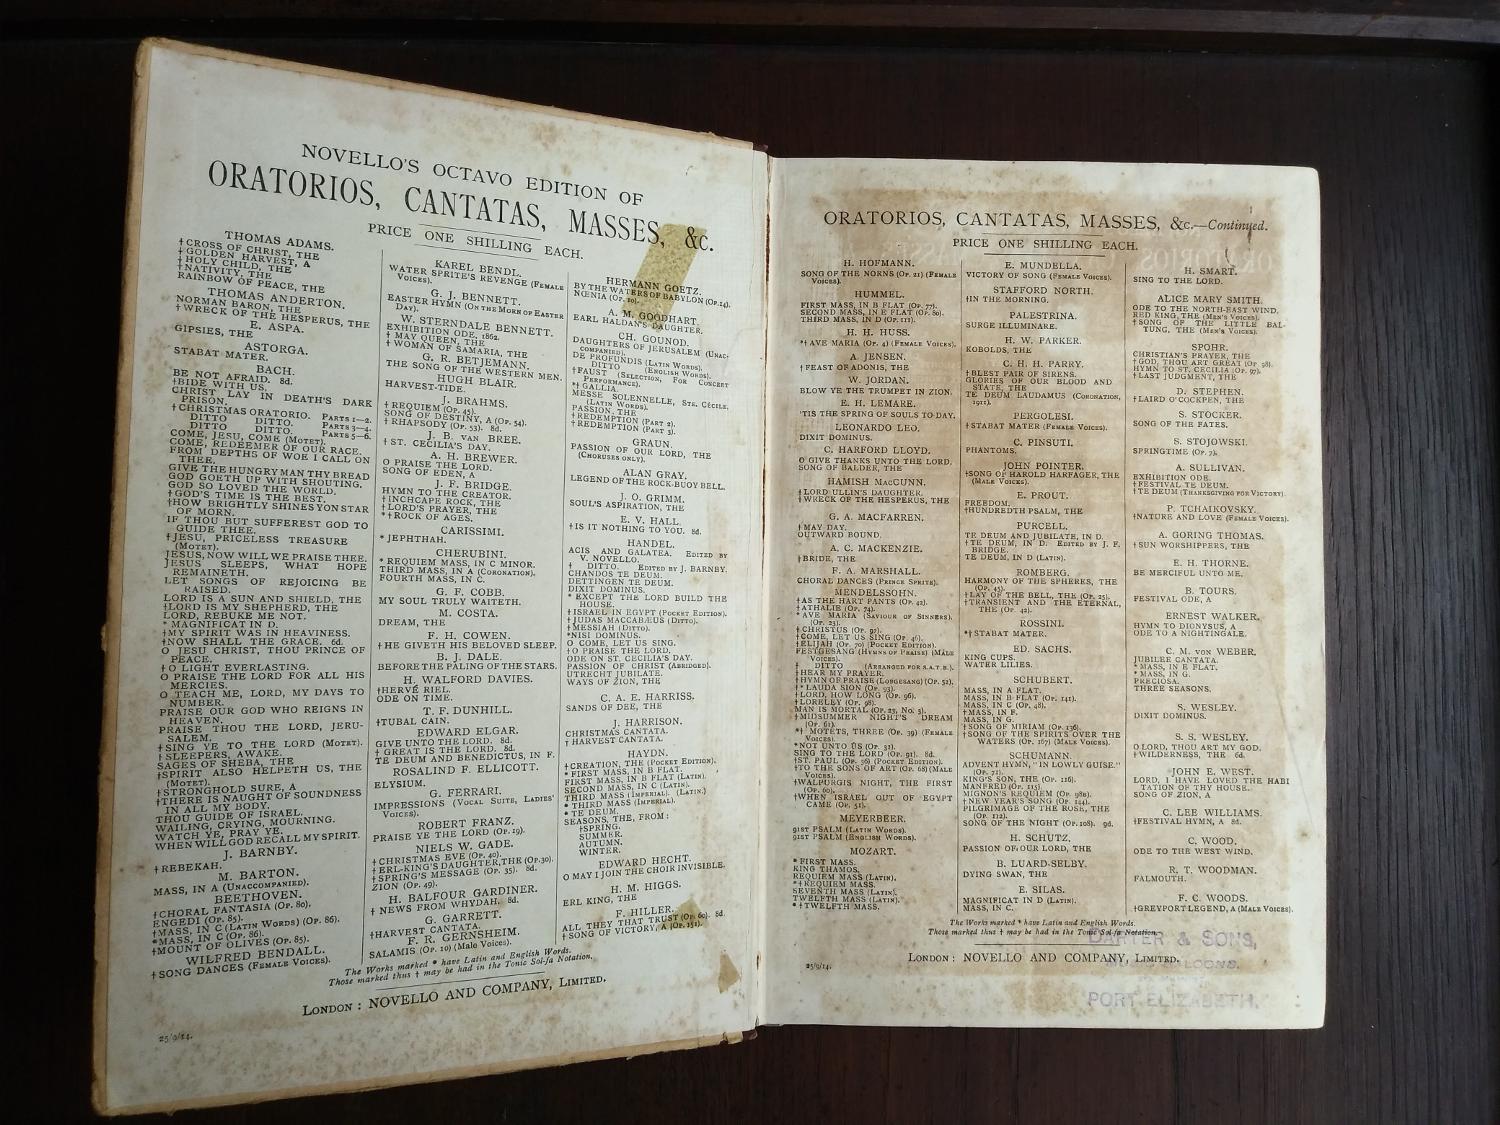 NOVELLO'S OCTAVO EDITION OF
ORATORIOS, CANTATAS, MASSES, &c.
PRICE ONE SHILLING EACH.
THOMAS ADAMS.
†CROSS OF CHRIST, THE
†GOLDEN HARVEST, A
†HOLY CHILD, THE
†NATIVITY, THE
RAINBOW OF PEACE, THE
THOMAS ANDERTON.
NORMAN BARON, THE
†WRECK OF THE HESPERUS, THE
E. ASPA.
GIPSIES, THE
ASTORGA.
STABAT MATER.
BACH.
BE NOT AFRAID. 8d.
†BIDE WITH US.
CHRIST LAY IN DEATH'S DARK
PRISON.
†CHRISTMAS ORATORIO. PARTS 1-2.
DITTO DITTO. PARTS 3-4.
DITTO DITTO. PARTS 5-6.
COME, JESU, COME (MOTET).
COME, REDEEMER OF OUR RACE.
FROM DEPTHS OF WOE I CALL ON
THEE.
GIVE THE HUNGRY MAN THY BREAD
GOD GOETH UP WITH SHOUTING.
GOD SO LOVED THE WORLD.
†GOD'S TIME IS THE BEST.
†HOW BRIGHTLY SHINES YON STAR
OF MORN.
IF THOU BUT SUFFEREST GOD TO
GUIDE THEE.
†JESU, PRICELESS TREASURE
(MOTET).
JESUS, NOW WILL WE PRAISE THEE.
JESUS SLEEPS, WHAT HOPE
REMAINETH.
LET SONGS OF REJOICING BE
RAISED.
LORD IS A SUN AND SHIELD, THE
†LORD IS MY SHEPHERD, THE
LORD, REBUKE ME NOT.
*MAGNIFICAT IN D.
†MY SPIRIT WAS IN HEAVINESS.
†NOW SHALL THE GRACE. 6d.
O JESU CHRIST, THOU PRINCE OF
PEACE.
†O LIGHT EVERLASTING.
O PRAISE THE LORD FOR ALL HIS
MERCIES.
O TEACH ME, LORD, MY DAYS TO
NUMBER.
PRAISE OUR GOD WHO REIGNS IN
HEAVEN.
PRAISE THOU THE LORD, JERU-
SALEM.
†SING YE TO THE LORD (MOTET).
†SLEEPERS, AWAKE.
SAGES OF SHEBA, THE
†SPIRIT ALSO HELPETH US, THE
(MOTET).
†STRONGHOLD SURE, A
†THERE IS NAUGHT OF SOUNDNESS
IN ALL MY BODY.
THOU GUIDE OF ISRAEL.
WAILING, CRYING, MOURNING.
WATCH YE, PRAY YE.
WHEN WILL GOD RECALL MY SPIRIT.
J. BARNBY.
†REBEKAH.
M. BARTON.
MASS, IN A (UNACCOMPANIED).
BEETHOVEN.
†CHORAL FANTASIA (OP. 80).
ENGEDI (OP. 85).
†MASS, IN C (LATIN WORDS) (OP. 86).
*MASS, IN C (OP. 86).
†MOUNT OF OLIVES (OP. 85).
WILFRED BENDALL.
†SONG DANCES (FEMALE VOICES).
KAREL BENDL.
WATER SPRITE'S REVENGE (FEMALE
VOICES).
G. J. BENNETT.
EASTER HYMN (ON THE MORN OF EASTER
DAY).
W. STERNDALE BENNETT.
EXHIBITION ODE, 1862.
†MAY QUEEN, THE
†WOMAN OF SAMARIA, THE
G. R. BETJEMANN.
THE SONG OF THE WESTERN MEN.
HUGH BLAIR.
HARVEST-TIDE.
J. BRAHMS.
†REQUIEM (OP. 45).
SONG OF DESTINY, A (OP. 54).
†RHAPSODY (OP. 53). 8d.
J. B. VAN BREE.
†ST. CECILIA'S DAY.
A. H. BREWER.
O PRAISE THE LORD.
SONG OF EDEN, A
J. F. BRIDGE.
HYMN TO THE CREATOR.
†INCHCAPE ROCK, THE
†LORD'S PRAYER, THE
*†ROCK OF AGES.
CARISSIMI.
*JEPHTHAH.
CHERUBINI.
*REQUIEM MASS, IN C MINOR.
THIRD MASS, IN A (CORONATION).
FOURTH MASS, IN C.
G. F. COBB.
MY SOUL TRULY WAITETH.
M. COSTA.
DREAM, THE
F. H. COWEN.
†HE GIVETH HIS BELOVED SLEEP.
B. J. DALE.
BEFORE THE PALING OF THE STARS.
H. WALFORD DAVIES.
†HERVÉ RIEL.
ODE ON TIME.
T. F. DUNHILL.
†TUBAL CAIN.
EDWARD ELGAR.
GIVE UNTO THE LORD. 8d.
†GREAT IS THE LORD. 8d.
TE DEUM AND BENEDICTUS, IN F.
ROSALIND F. ELLICOTT.
ELYSIUM.
G. FERRARI.
IMPRESSIONS (VOCAL SUITE, LADIES'
VOICES).
ROBERT FRANZ.
PRAISE YE THE LORD (OP. 19).
NIELS W. GADE.
†CHRISTMAS EVE (OP. 40).
†ERL-KING'S DAUGHTER, THE (OP. 30).
†SPRING'S MESSAGE (OP. 35). 8d.
ZION (OP. 49).
H. BALFOUR GARDINER.
†NEWS FROM WHYDAH. 8d.
G. GARRETT.
†HARVEST CANTATA.
F. R. GERNSHEIM.
SALAMIS (OP. 10) (MALE VOICES).
HERMANN GOETZ.
BY THE WATERS OF BABYLON (OP. 14).
NŒNIA (OP. 10).
A. M. GOODHART.
EARL HALDAN'S DAUGHTER.
CH. GOUNOD.
DAUGHTERS OF JERUSALEM (UNAC-
COMPANIED).
DE PROFUNDIS (LATIN WORDS).
DITTO (ENGLISH WORDS).
†FAUST (SELECTION, FOR CONCERT
PERFORMANCE).
*†GALLIA.
MESSE SOLENNELLE, STE. CÉCILE.
(LATIN WORDS).
PASSION, THE
†REDEMPTION (PART 2).
†REDEMPTION (PART 3).
GRAUN.
PASSION OF OUR LORD, THE
(CHORUSES ONLY).
ALAN GRAY.
LEGEND OF THE ROCK-BUOY BELL.
J. O. GRIMM.
SOUL'S ASPIRATION, THE
E. V. HALL.
†IS IT NOTHING TO YOU. 8d.
HANDEL.
ACIS AND GALATEA. EDITED BY
V. NOVELLO.
†DITTO. EDITED BY J. BARNBY.
CHANDOS TE DEUM.
DETTINGEN TE DEUM.
DIXIT DOMINUS.
*EXCEPT THE LORD BUILD THE
HOUSE.
†ISRAEL IN EGYPT (POCKET EDITION).
†JUDAS MACCABÆUS (DITTO).
†MESSIAH (DITTO).
*NISI DOMINUS.
O COME, LET US SING.
†O PRAISE THE LORD.
ODE ON ST. CECILIA'S DAY.
PASSION OF CHRIST (ABRIDGED).
UTRECHT JUBILATE.
WAYS OF ZION, THE
C. A. E. HARRISS.
SANDS OF DEE, THE
J. HARRISON.
CHRISTMAS CANTATA.
†HARVEST CANTATA.
HAYDN.
†CREATION, THE (POCKET EDITION).
*FIRST MASS, IN B FLAT.
FIRST MASS, IN B FLAT (LATIN).
SECOND MASS, IN C (LATIN).
THIRD MASS (IMPERIAL). (LATIN.)
*THIRD MASS (IMPERIAL).
*TE DEUM.
SEASONS, THE, FROM:
†SPRING.
SUMMER.
AUTUMN.
WINTER.
EDWARD HECHT.
O MAY I JOIN THE CHOIR INVISIBLE.
H. M. HIGGS.
ERL KING, THE
F. HILLER.
ALL THEY THAT TRUST (OP. 60). 8d.
†SONG OF VICTORY, A (OP. 151).
The Works marked * have Latin and English Words.
Those marked thus † may be had in the Tonic Sol-fa Notation.
LONDON: NOVELLO AND COMPANY, LIMITED.
25/9/14.
ORATORIOS, CANTATAS, MASSES, &c.—Continued.
PRICE ONE SHILLING EACH.
H. HOFMANN.
SONG OF THE NORNS (OP. 21) (FEMALE
VOICES).
HUMMEL.
FIRST MASS, IN B FLAT (OP. 77).
SECOND MASS, IN E FLAT (OP. 80).
THIRD MASS, IN D (OP. 111).
H. H. HUSS.
*†AVE MARIA (OP. 4) (FEMALE VOICES).
A. JENSEN.
†FEAST OF ADONIS, THE
W. JORDAN.
BLOW YE THE TRUMPET IN ZION.
E. H. LEMARE.
'TIS THE SPRING OF SOULS TO-DAY.
LEONARDO LEO.
DIXIT DOMINUS.
C. HARFORD LLOYD.
O GIVE THANKS UNTO THE LORD.
SONG OF BALDER, THE
HAMISH MACCUNN.
†LORD ULLIN'S DAUGHTER.
†WRECK OF THE HESPERUS, THE
G. A. MACFARREN.
†MAY DAY.
OUTWARD BOUND.
A. C. MACKENZIE.
†BRIDE, THE
F. A. MARSHALL.
CHORAL DANCES (PRINCE SPRITE).
MENDELSSOHN.
†AS THE HART PANTS (OP. 42).
†ATHALIE (OP. 74).
*AVE MARIA (SAVIOUR OF SINNERS).
(OP. 23).
†CHRISTUS (OP. 97).
†COME, LET US SING (OP. 46).
†ELIJAH (OP. 70) (POCKET EDITION).
FESTGESANG (HYMNS OF PRAISE) (MALE
VOICES).
† DITTO (ARRANGED FOR S.A.T.B.).
†HEAR MY PRAYER.
†HYMN OF PRAISE (LOBGESANG) (OP. 52).
*†LAUDA SION (OP. 73).
†LORD, HOW LONG (OP. 96).
†LORELEY (OP. 98).
MAN IS MORTAL (OP. 23, NO. 3).
†MIDSUMMER NIGHT'S DREAM
(OP. 61).
*†MOTETS, THREE (OP. 39) (FEMALE
VOICES).
*NOT UNTO US (OP. 31).
SING TO THE LORD (OP. 91). 8d.
†ST. PAUL (OP. 36) (POCKET EDITION).
†TO THE SONS OF ART (OP. 68) (MALE
VOICES).
†WALPURGIS NIGHT, THE FIRST
(OP. 60).
†WHEN ISRAEL OUT OF EGYPT
CAME (OP. 51).
MEYERBEER.
91ST PSALM (LATIN WORDS).
91ST PSALM (ENGLISH WORDS).
MOZART.
*FIRST MASS.
KING THAMOS.
REQUIEM MASS (LATIN).
*†REQUIEM MASS.
SEVENTH MASS (LATIN).
TWELFTH MASS (LATIN).
*†TWELFTH MASS.
E. MUNDELLA.
VICTORY OF SONG (FEMALE VOICES).
STAFFORD NORTH.
†IN THE MORNING.
PALESTRINA.
SURGE ILLUMINARE.
H. W. PARKER.
KOBOLDS, THE
C. H. H. PARRY.
†BLEST PAIR OF SIRENS.
GLORIES OF OUR BLOOD AND
STATE, THE
TE DEUM LAUDAMUS (CORONATION,
1911).
PERGOLESI.
†STABAT MATER (FEMALE VOICES).
C. PINSUTI.
PHANTOMS.
JOHN POINTER.
†SONG OF HAROLD HARFAGER, THE
(MALE VOICES).
E. PROUT.
FREEDOM.
†HUNDREDTH PSALM, THE
PURCELL.
TE DEUM AND JUBILATE, IN D.
†TE DEUM, IN D. EDITED BY J. F.
BRIDGE.
TE DEUM, IN D (LATIN).
ROMBERG.
HARMONY OF THE SPHERES, THE
(OP. 45).
†LAY OF THE BELL, THE (OP. 25).
†TRANSIENT AND THE ETERNAL,
THE (OP. 42).
ROSSINI.
*†STABAT MATER.
ED. SACHS.
KING CUPS.
WATER LILIES.
SCHUBERT.
MASS, IN A FLAT.
MASS, IN B FLAT (OP. 141).
MASS, IN C (OP. 48).
†MASS, IN F.
MASS, IN G.
†SONG OF MIRIAM (OP. 136).
†SONG OF THE SPIRITS OVER THE
WATERS (OP. 167) (MALE VOICES).
SCHUMANN.
ADVENT HYMN, "IN LOWLY GUISE."
(OP. 71).
KING'S SON, THE (OP. 116).
MANFRED (OP. 115).
MIGNON'S REQUIEM (OP. 98B).
†NEW YEAR'S SONG (OP. 144).
PILGRIMAGE OF THE ROSE, THE
(OP. 112).
SONG OF THE NIGHT (OP. 108). 9d.
H. SCHUTZ.
PASSION OF OUR LORD, THE
B. LUARD-SELBY.
DYING SWAN, THE
E. SILAS.
MAGNIFICAT IN D (LATIN).
MASS, IN C.
H. SMART.
SING TO THE LORD.
ALICE MARY SMITH.
ODE TO THE NORTH-EAST WIND.
RED KING, THE (MEN'S VOICES).
†SONG OF THE LITTLE BAL-
TUNG, THE (MEN'S VOICES).
SPOHR.
CHRISTIAN'S PRAYER, THE
†GOD, THOU ART GREAT (OP. 98).
HYMN TO ST. CECILIA (OP. 97).
†LAST JUDGMENT, THE
D. STEPHEN.
†LAIRD O'COCKPEN, THE
S. STOCKER.
SONG OF THE FATES.
S. STOJOWSKI.
SPRINGTIME (OP. 7).
A. SULLIVAN.
EXHIBITION ODE.
†FESTIVAL TE DEUM.
†TE DEUM (THANKSGIVING FOR VICTORY).
P. TCHAIKOVSKY.
†NATURE AND LOVE (FEMALE VOICES).
A. GORING THOMAS.
†SUN WORSHIPPERS, THE
E. H. THORNE.
BE MERCIFUL UNTO ME.
B. TOURS.
FESTIVAL ODE, A
ERNEST WALKER.
HYMN TO DIONYSUS, A
ODE TO A NIGHTINGALE.
C. M. VON WEBER.
JUBILEE CANTATA.
*MASS, IN E FLAT.
*MASS, IN G.
PRECIOSA.
THREE SEASONS.
S. WESLEY.
DIXIT DOMINUS.
S. S. WESLEY.
O LORD, THOU ART MY GOD.
†WILDERNESS, THE 6d.
JOHN E. WEST.
LORD, I HAVE LOVED THE HABI
TATION OF THY HOUSE.
SONG OF ZION, A
C. LEE WILLIAMS.
†FESTIVAL HYMN, A 8d.
C. WOOD.
ODE TO THE WEST WIND.
R. T. WOODMAN.
FALMOUTH.
F. C. WOODS.
†GREYPORT LEGEND, A (MALE VOICES).
The Works marked * have Latin and English Words.
Those marked thus † may be had in the Tonic Sol-fa Notation.
LONDON: NOVELLO AND COMPANY, LIMITED.
25/9/14.
DARTER & SONS,
PORT ELIZABETH.